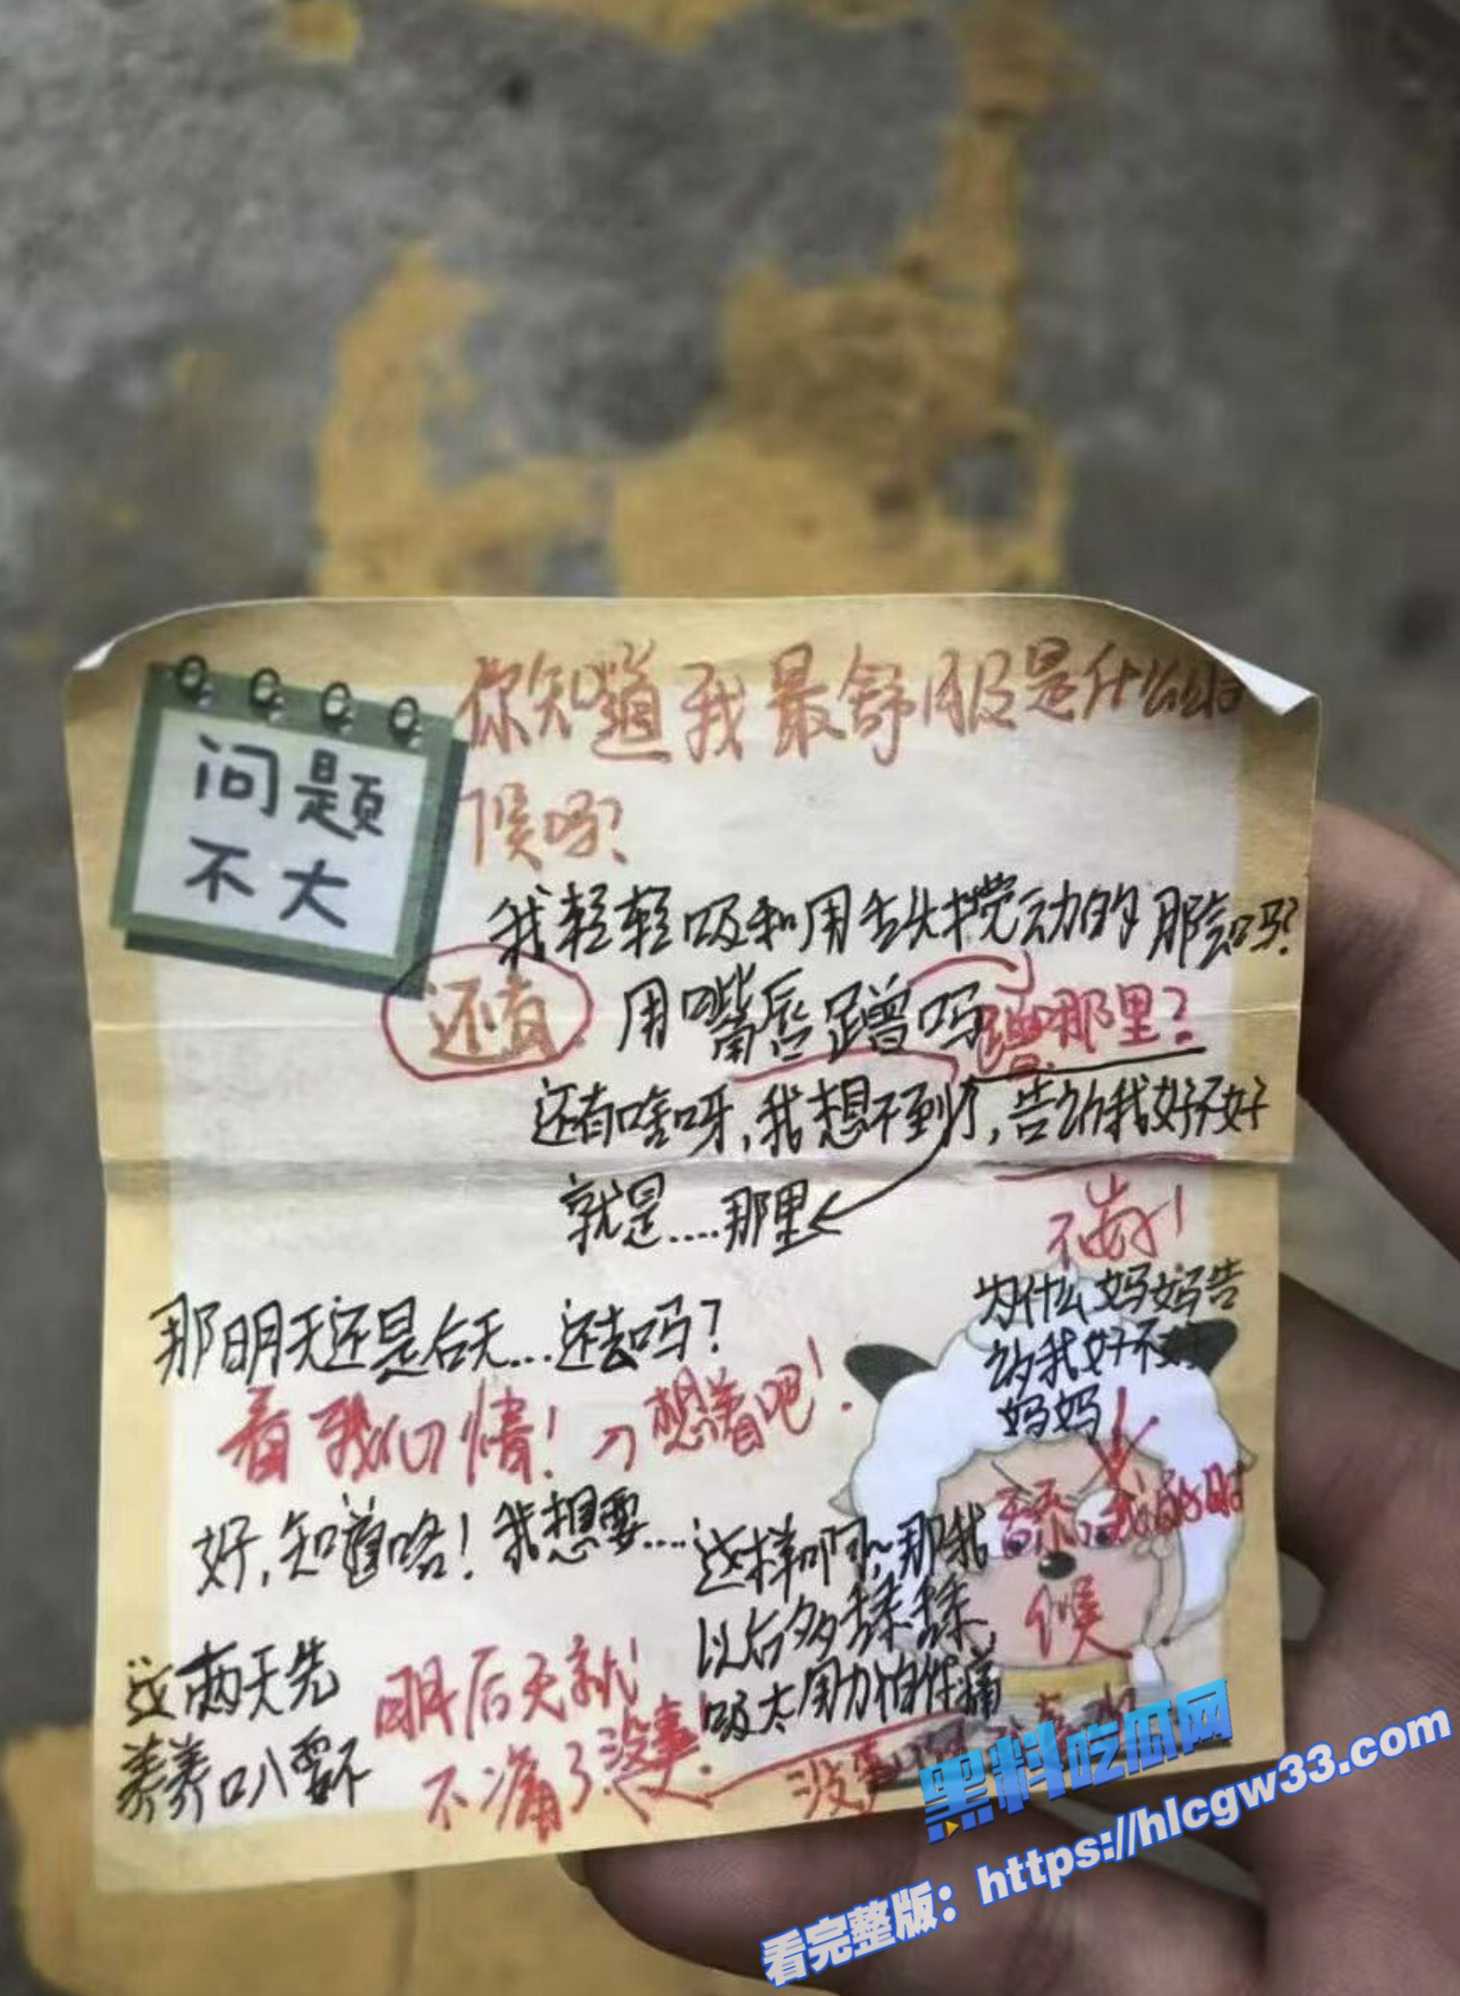 问题
不大
你知道我最舒服是什么时
候吗?
我轻轻吸和用舌头搅动的那会吗?
还有 用嘴唇蹭吗 蹭哪里?
还有啥呀,我想不到了,告诉我好不好
就是....那里
不告!
为什么妈妈告
诉我好不好
妈妈
那明天还是后天...还去吗?
看我们情! 想着吧!
好,知道咯!我想要....
这样啊,那我
以后多揉揉,
吸太用力怕你痛
我的时
候
这两天先
养养
明后天就
不痛了没事!
黑料吃瓜网
看完整版：https://hlcgw33.com